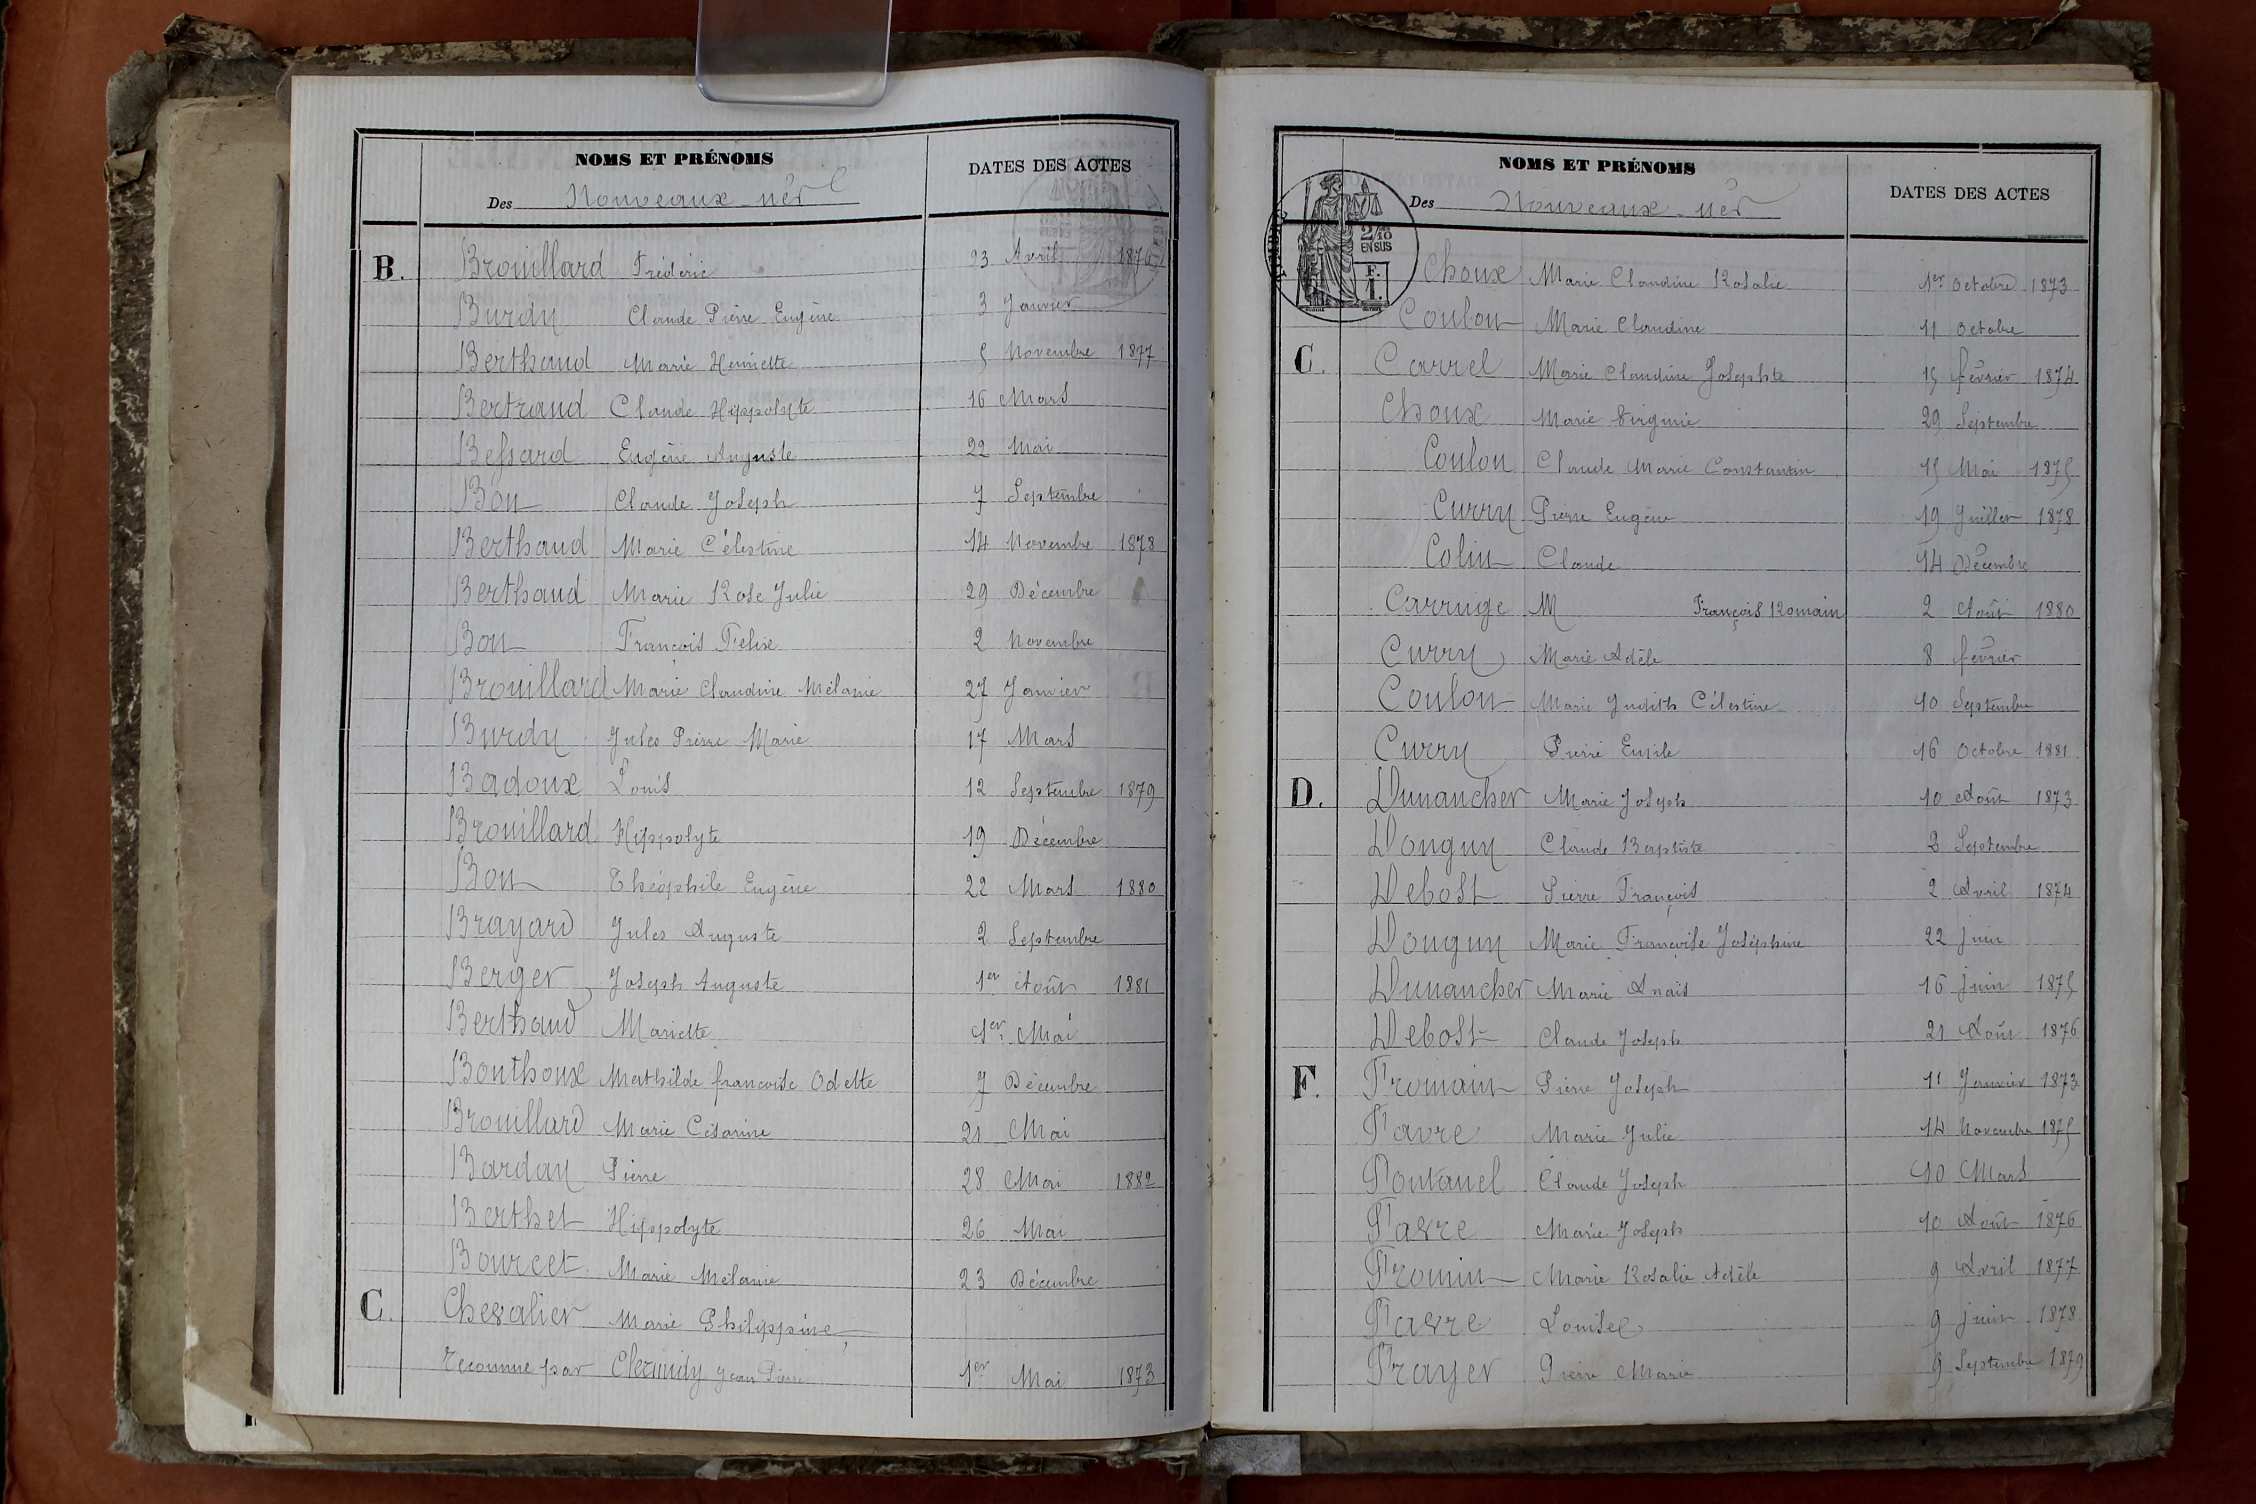 NOMS ET PRÉNOMS
DATES DES ACTES
Des Nouveaux nés
B. Brouillard Frédéric 23 Avril 1876
Burdy Claude Pierre Eugène 3 Janvier
Berthaud Marie Henriette 5 Novembre 1877
Bertrand Claude Hippolyte 16 Mars
Bessard Eugène Auguste 22 Mai
Bon Claude Joseph 7 Septembre
Berthaud Marie Célestine 14 Novembre 1878
Berthaud Marie Rose Julie 29 Décembre
Bon François Felix 2 Novembre
Brouillard Marie Claudine Mélanie 27 Janvier
Burdy Jules Pierre Marie 17 Mars
Badoux Louis 12 Septembre 1879
Brouillard Hippolyte 19 Décembre
Bon Théophile Eugène 22 Mars 1880
Brayard Jules Auguste 2 Septembre
Berger Joseph Auguste 1er Août 1881
Berthaud Mariette 1er Mai
Bonthoux Mathilde francoise Odette 7 Décembre
Brouillard Marie Césarine 21 Mai
Barday Pierre 28 Mai 1882
Berthet Hippolyte 26 Mai
Bourcet Marie Mélanie 23 Décembre
C. Chevalier Marie Philippine,
reconnue par Jean Pierre 1er Mai 1873
NOMS ET PRÉNOMS
DATES DES ACTES
Des Nouveaux nés
2/10
EN SUS
F.
1.
Choux Marie Claudine Rosalie 1er Octobre 1873
Coulon Marie Claudine 11 Octobre
C. Carrel Marie Claudine Josephte 15 février 1874
Choux Marie Virginie 29 Septembre
Coulon Claude Marie Constantin 15 Mai 1875
Curry Pierre Eugène 19 Juillet 1878
Colin Claude 14 Décembre
Carruge M François Romain 2 Août 1880
Curry Marie Adèle 8 février
Coulon Marie Judith Célestine 10 Septembre
Curry Pierre Emile 16 Octobre 1881
D. Dunancher Marie Joseph 10 Août 1873
Donguy Claude Baptiste 2 Septembre
Debost Pierre François 2 Avril 1874
Donguy Marie Françoise Joséphine 22 juin
Dunancher Marie Anaïs 16 juin 1875
Debost Claude Joseph 21 Août 1876
F. Fromain Pierre Joseph 11 Janvier 1873
Favre Marie Julie 14 Novembre 1875
Fontanel Claude Joseph 10 Mars
Favre Marie Joseph 10 Août 1876
Fromin Marie Rosalie Adèle 9 Avril 1877
Favre Louise 9 juin 1878
Frayer Pierre Marie 9 Septembre 1879